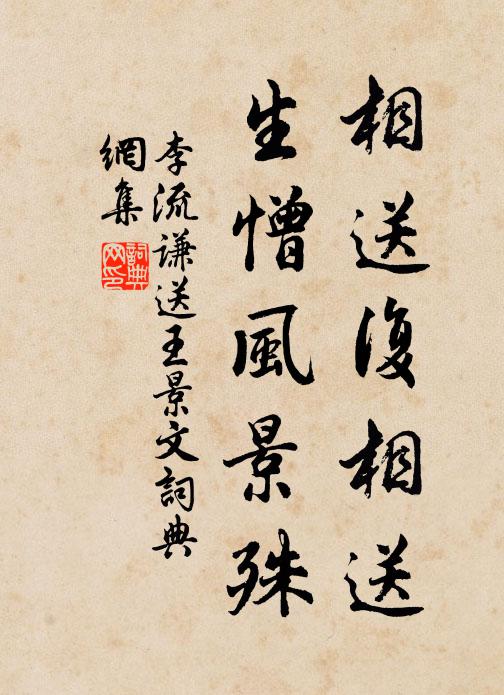 相送復相送
生憎風景殊
李流謙送王景文詞典
網集
詞典
网印